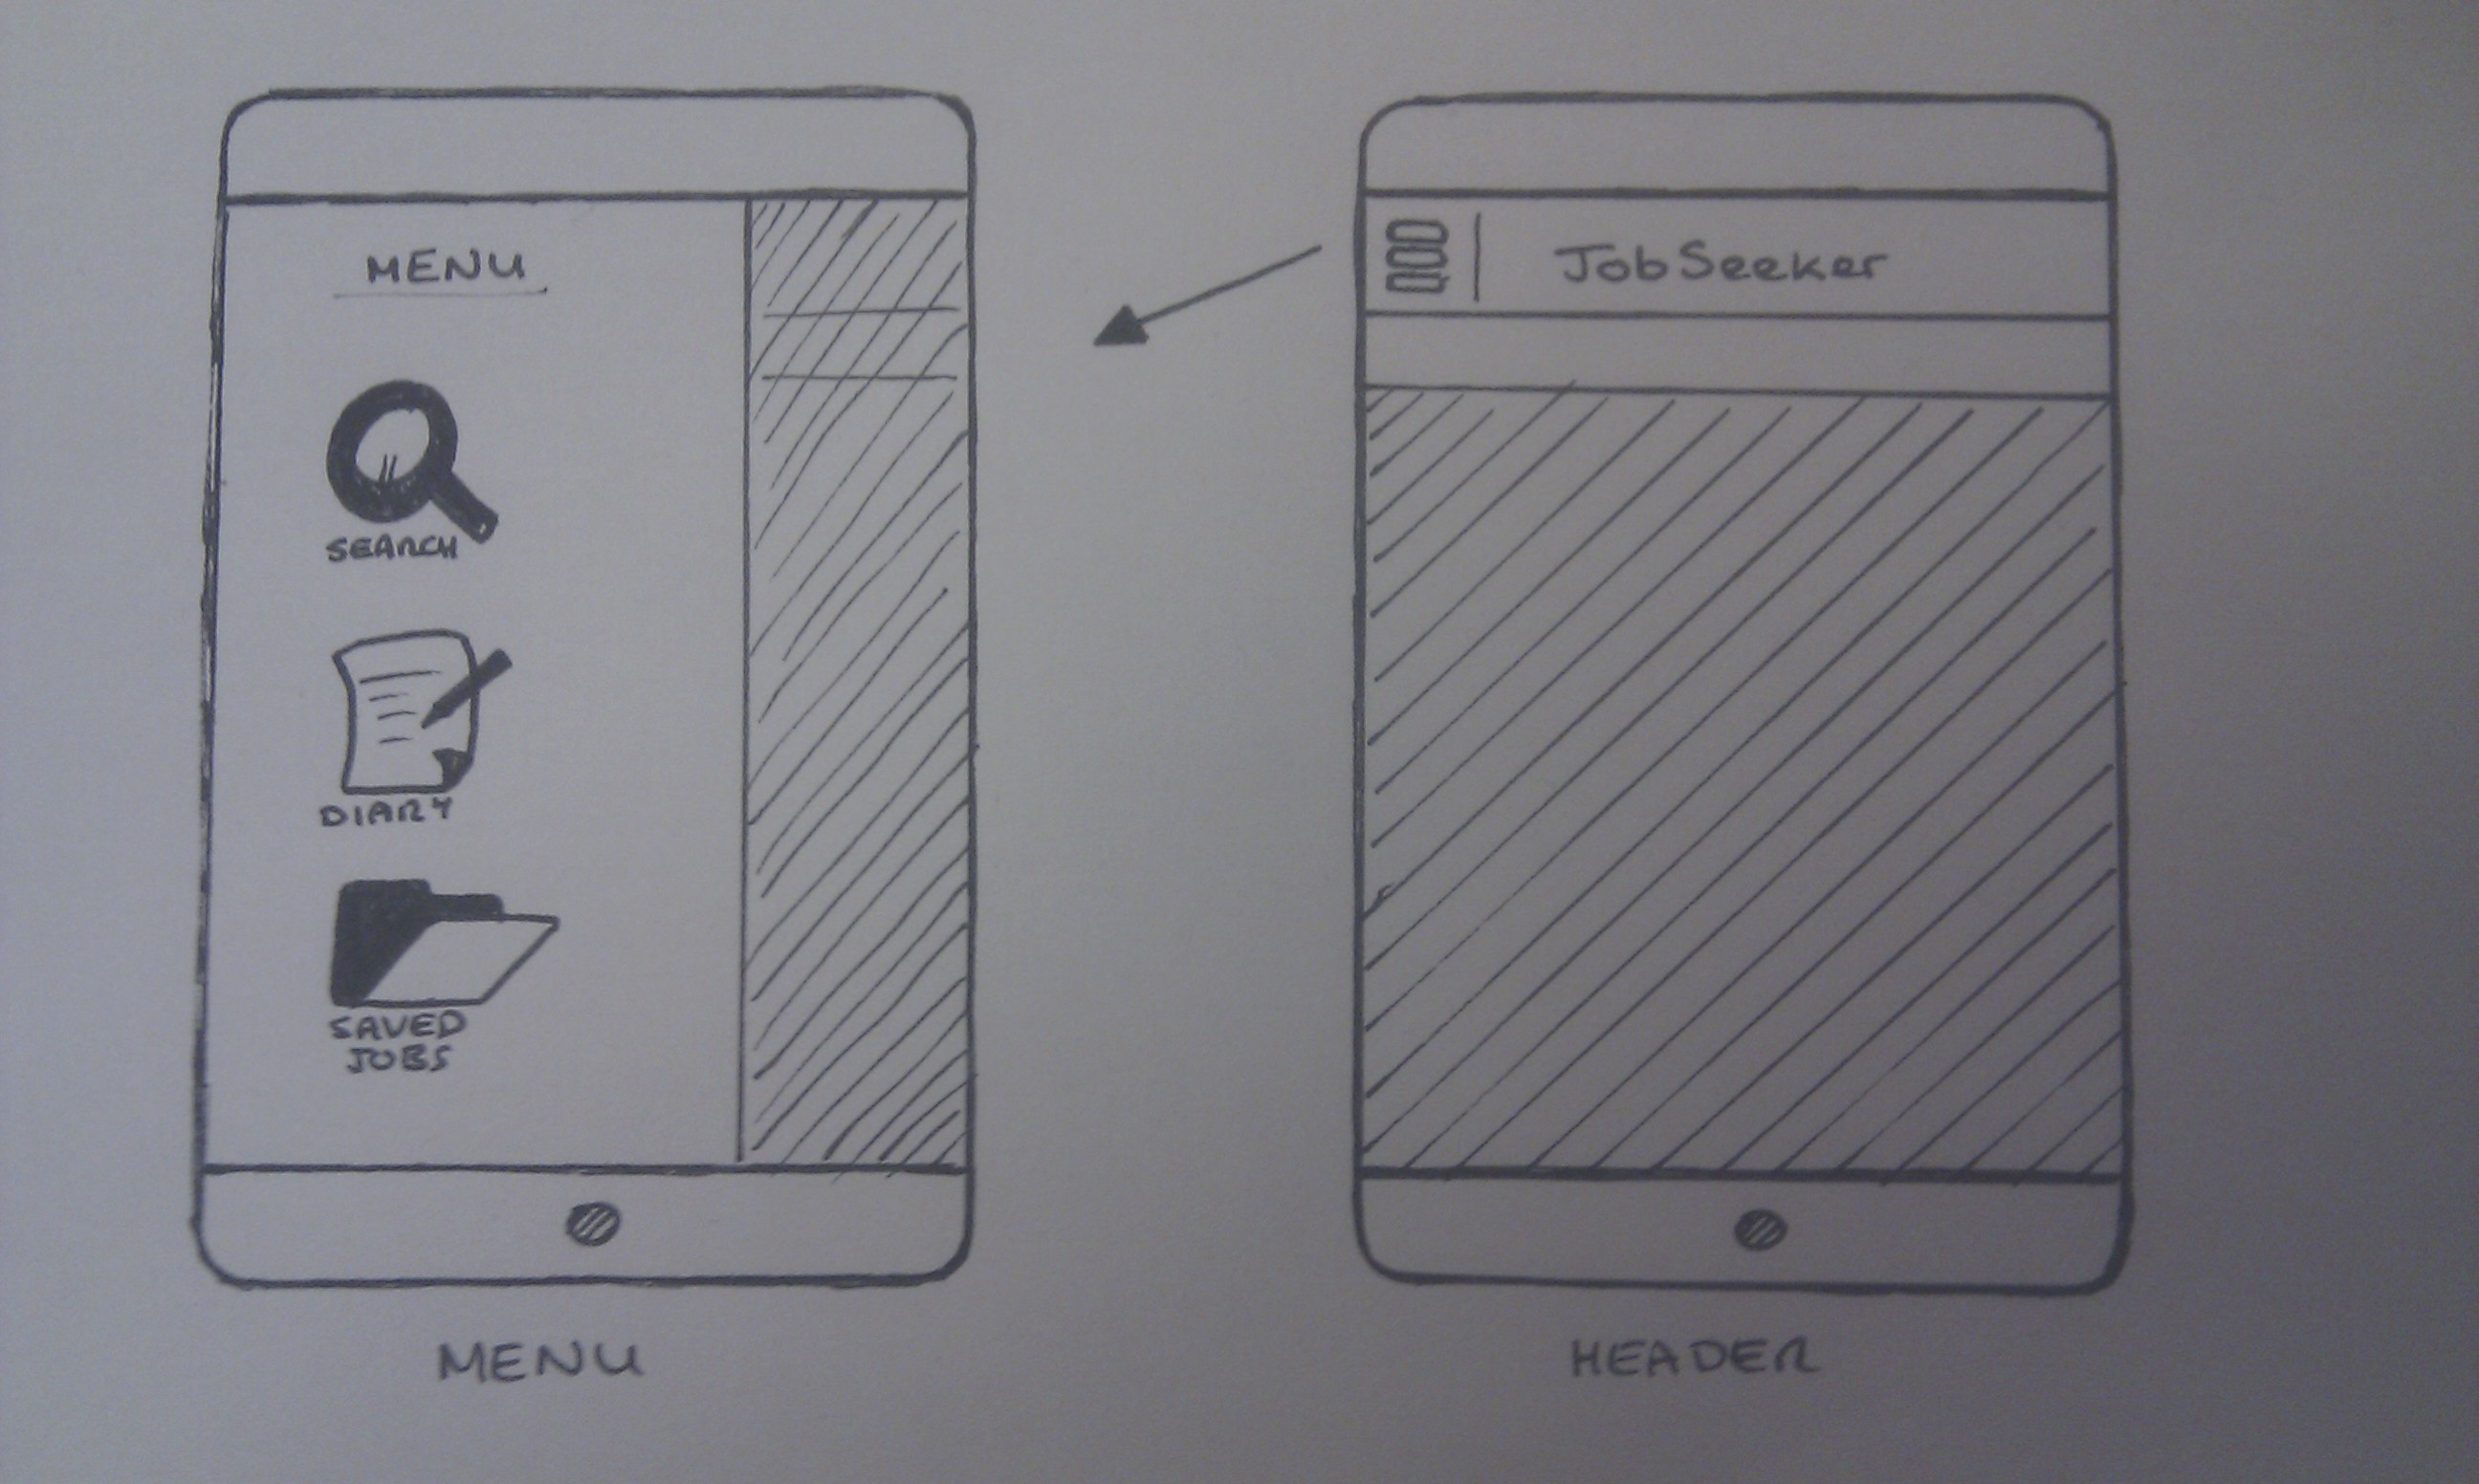 MENU
SEARCH
DIARY
SAVED
JOBS
MENU
JobSeeker
HEADER